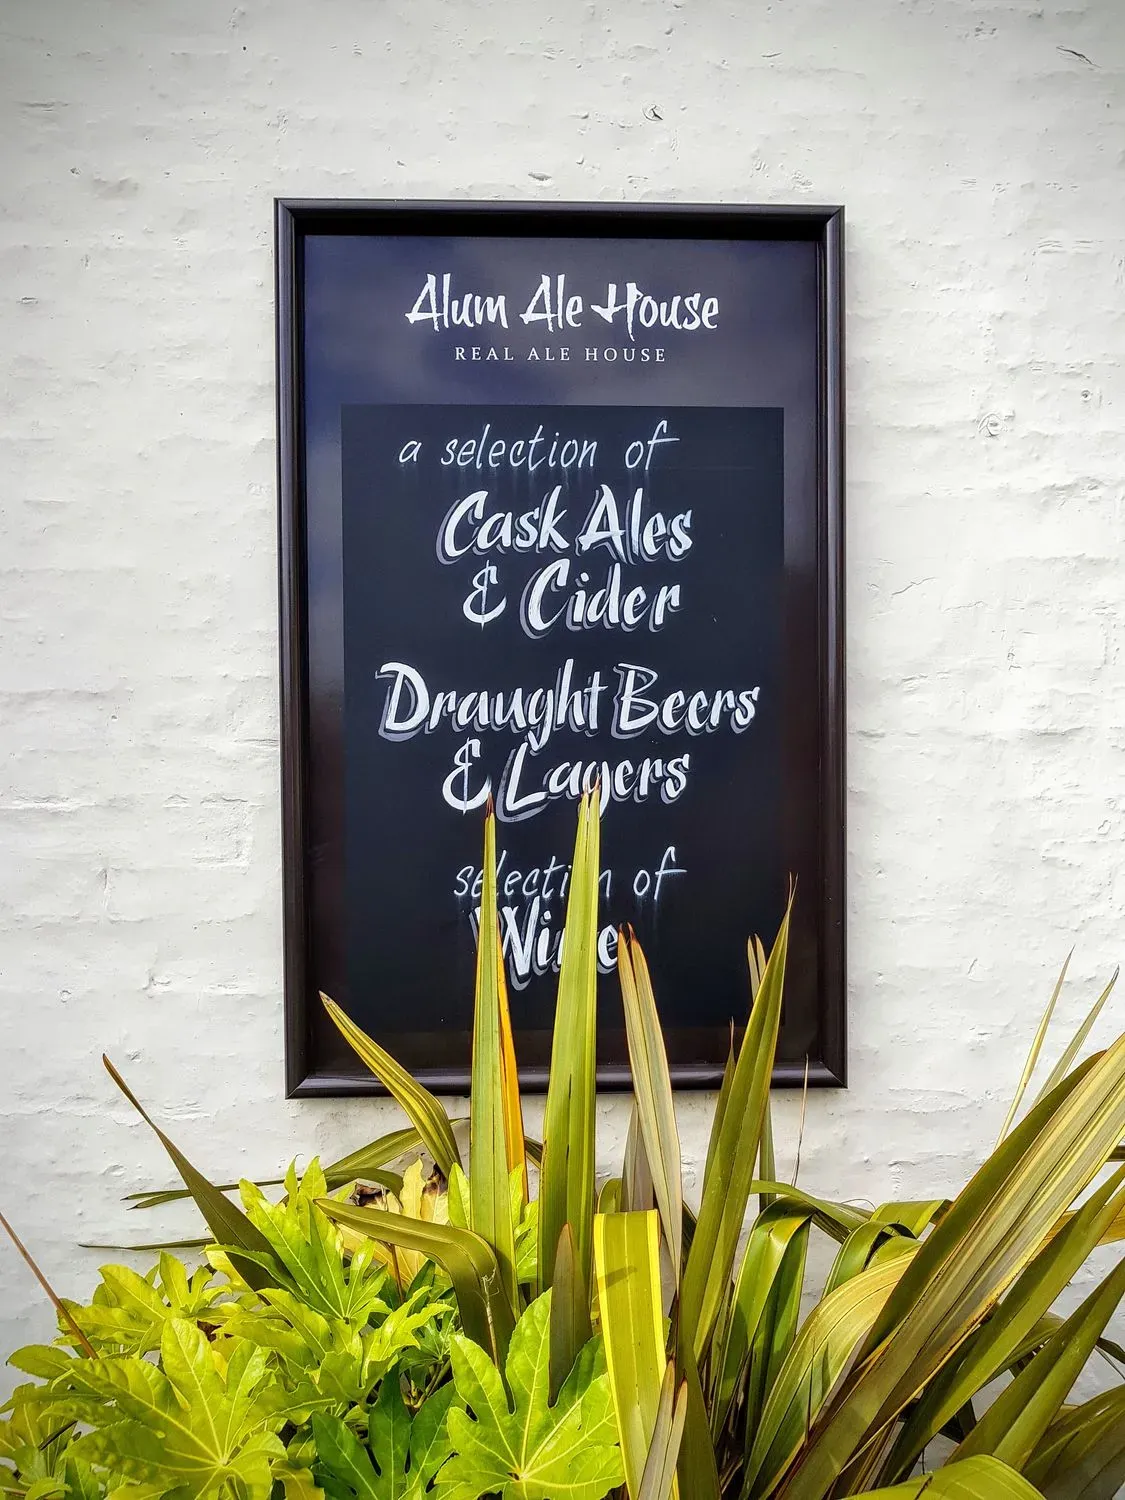 Alum Ale House
REAL ALE HOUSE
a selection of
Cask Ales
& Cider
Draught Beers
& Lagers
selection of
Wine